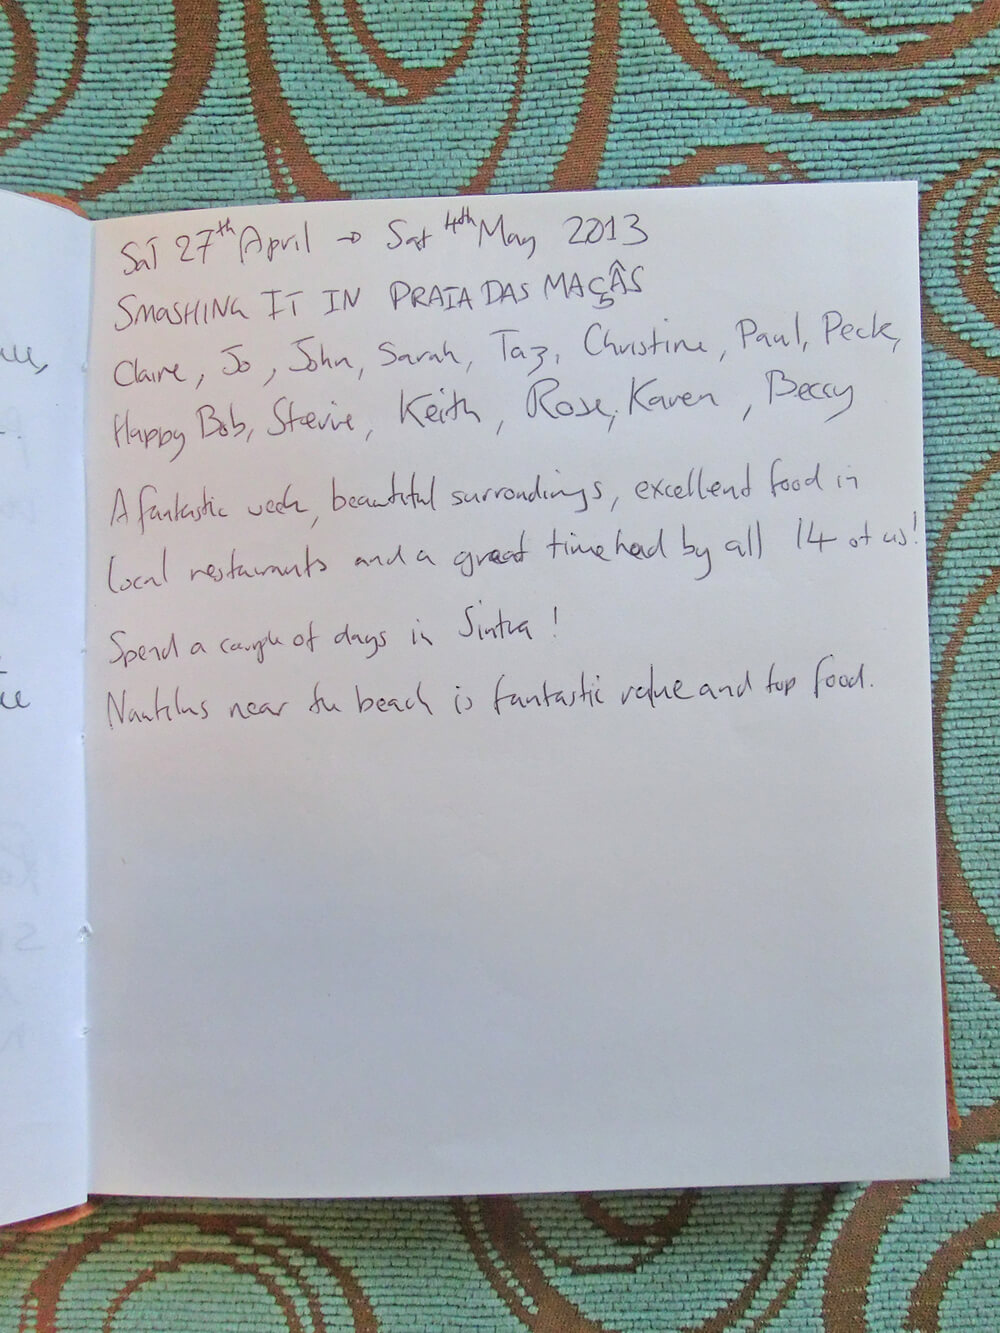 Sat 27th April → Sat 4th May 2013
SMASHING IT IN PRAIA DAS MAÇÂS
Claire, Jo, John, Sarah, Taz, Christine, Paul, Peck,
Happy Bob, Stevie, Keith, Rose, Karen, Beccy
A fantastic week, beautiful surroundings, excellent food in
local restaurants and a great time had by all 14 of us!
Spend a couple of days in Sintra!
Nautilus near the beach is fantastic value and top food.